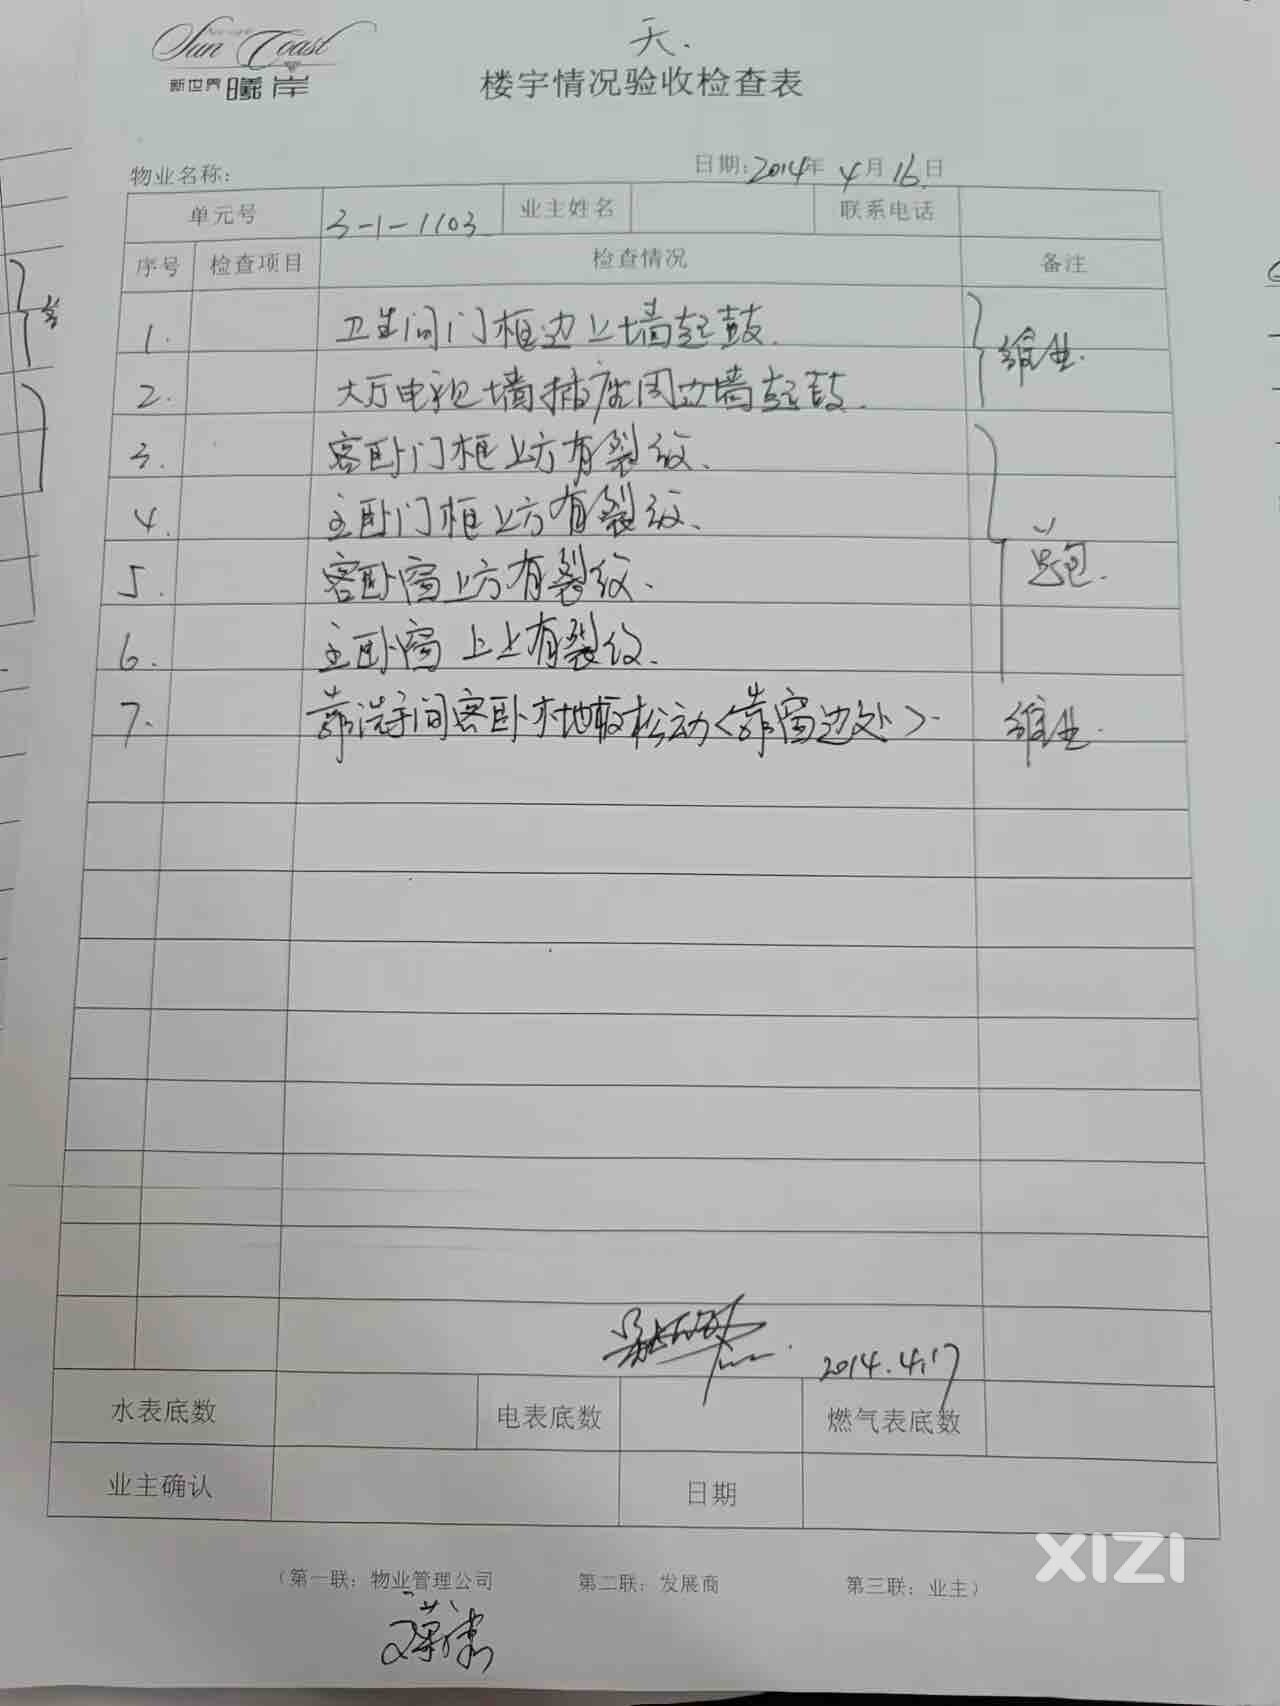 Sun Coast
新世界 曦岸
天.
楼宇情况验收检查表
物业名称: 日期:2014年4月16日
单元号 3-1-1103 业主姓名 联系电话
序号 检查项目 检查情况 备注
1. 卫生间门框边上墙起鼓.
2. 大厅电视墙插座周边墙起鼓.
维业.
3. 客卧门框上方有裂纹.
4. 主卧门框上方有裂纹.
5. 客卧窗上方有裂纹.
总包.
6. 主卧窗上上有裂纹.
7. 靠洗手间客卧木地板松动<靠窗边处>. 维业.
2014.4.17
水表底数 电表底数 燃气表底数
业主确认 日期
(第一联：物业管理公司 第二联：发展商 第三联：业主)
XIZI